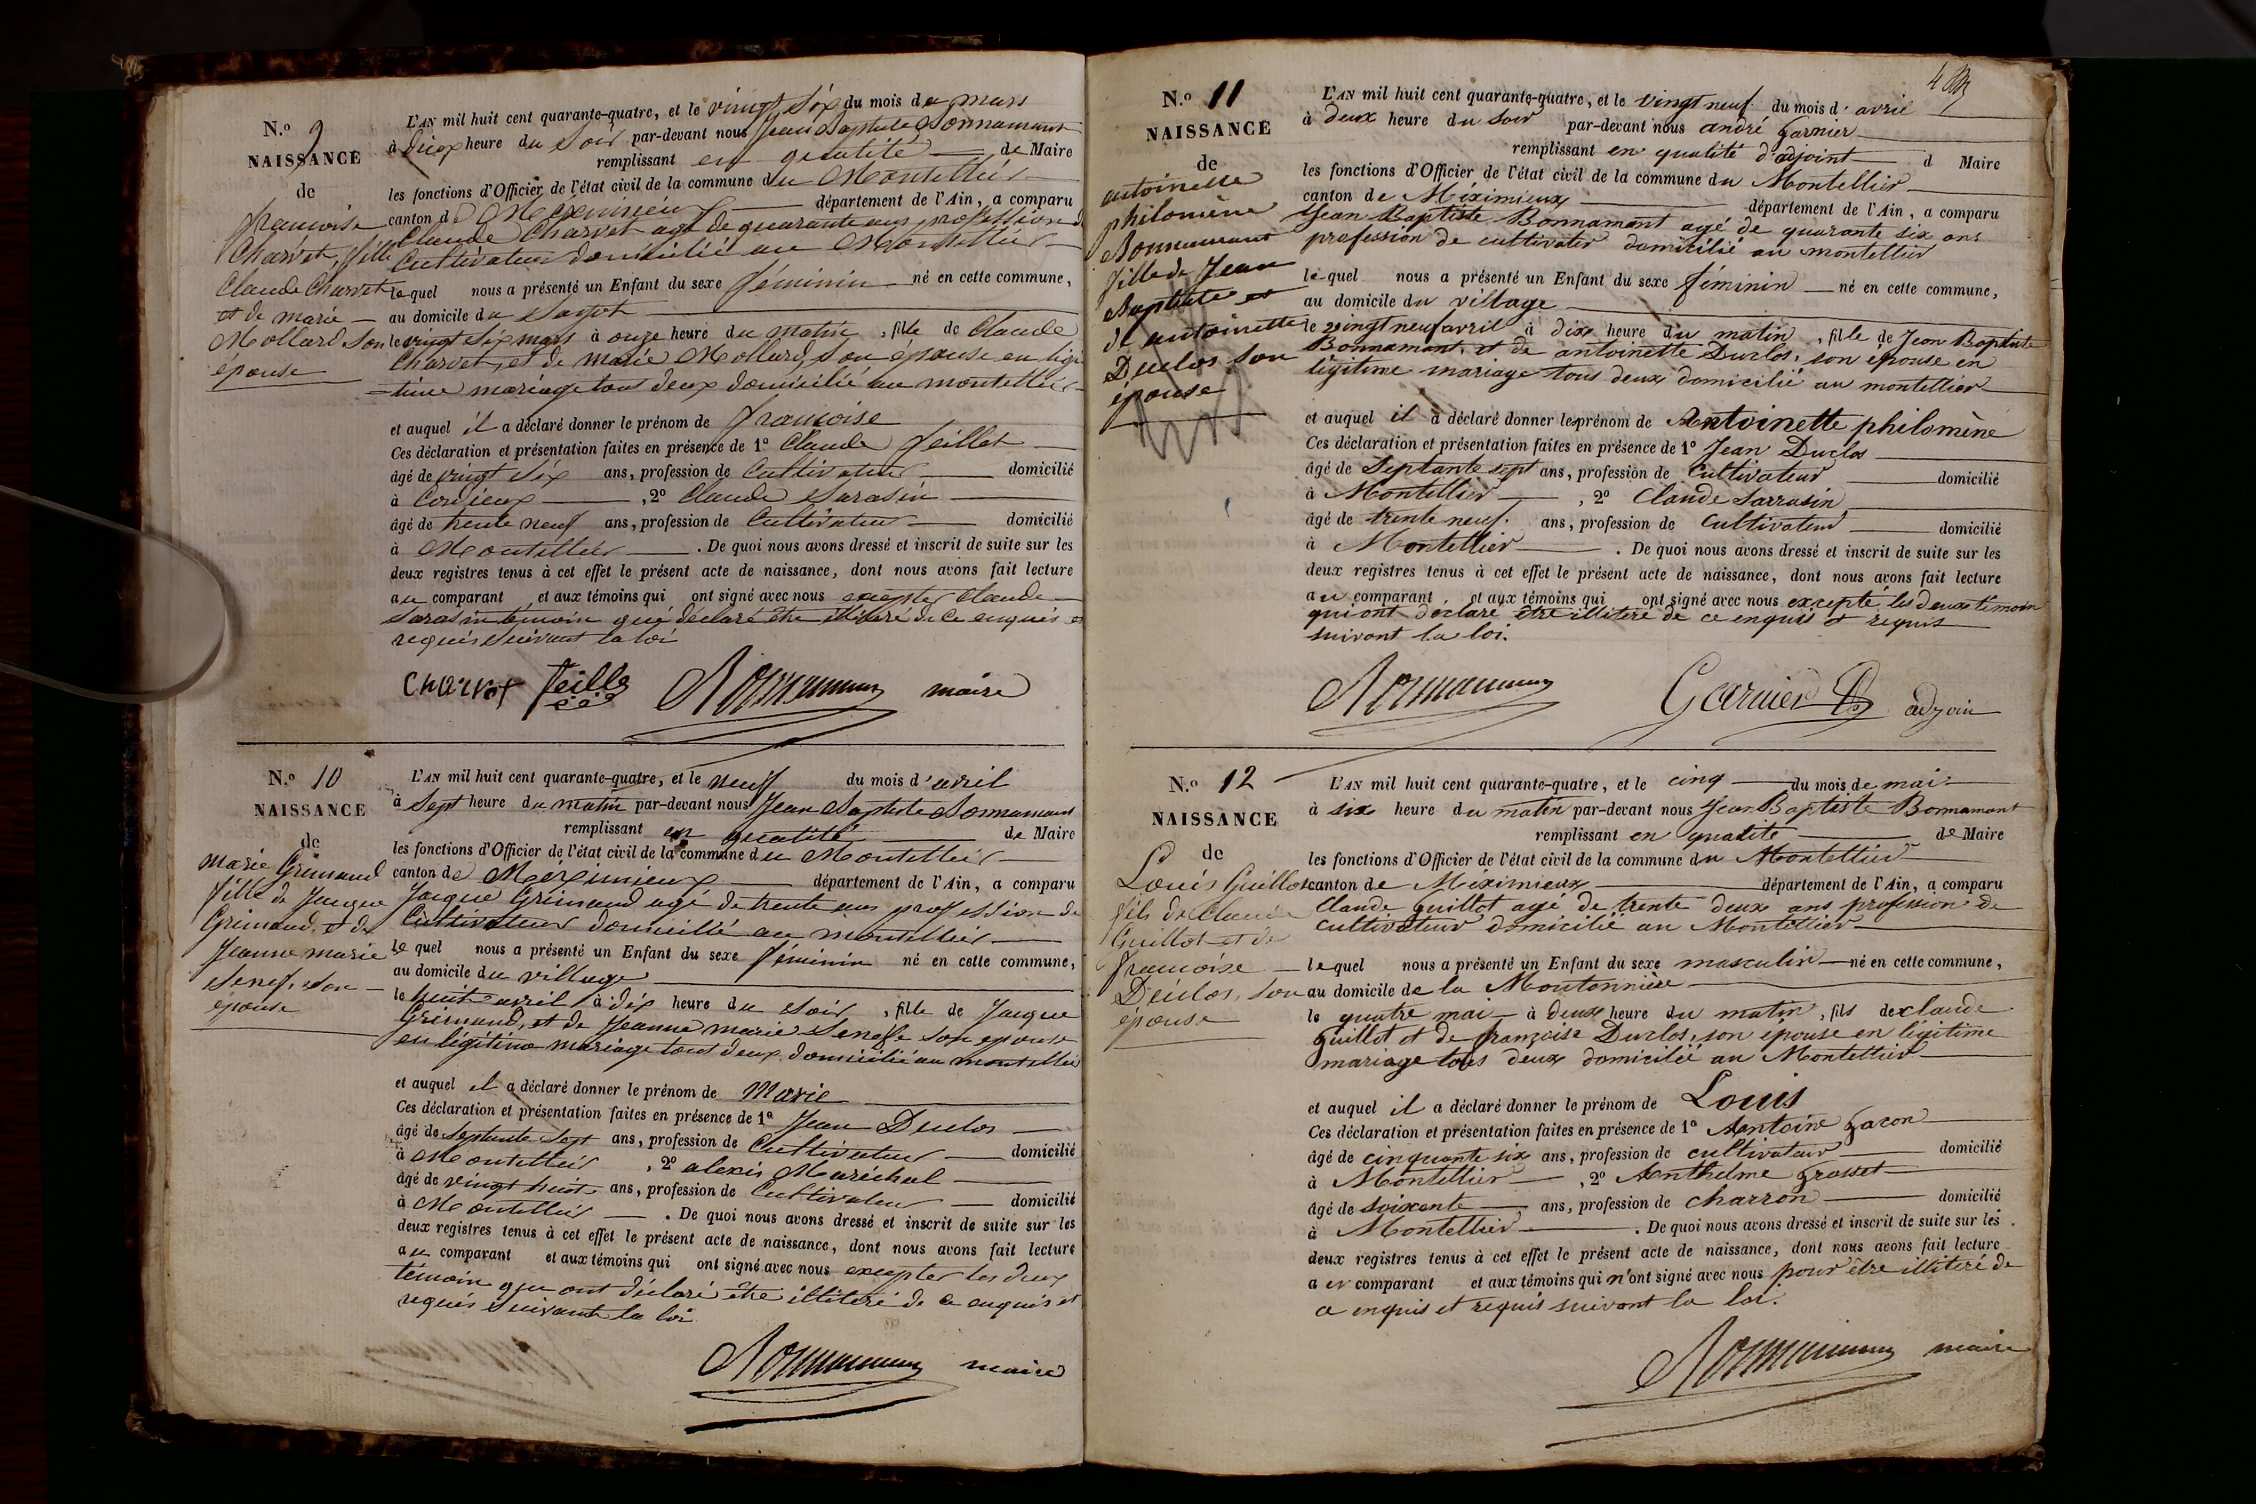 N.º 9
NAISSANCE
de
françoise
Charvet, fille
Claude Charvet
et de marie
Mollard son
épouse
L'AN mil huit cent quarante-quatre, et le vingt six du mois de mars
à deux heure du soir par-devant nous Jean Baptiste Bonnamant
remplissant en qualité de Maire
les fonctions d'Officier de l'état civil de la commune du Montellier
canton de Meximieux département de l'Ain, a comparu
Claude Charvet agé de quarante ans profession de
Cultivateur domicilié au Montellier
lequel nous a présenté un Enfant du sexe féminin né en cette commune,
au domicile du
le vingt six mars à onze heure du matin, fille de Claude
Charvet, et de marie Mollard, son épouse en légi
=time mariage tout deux domicilié au montellier
et auquel il a déclaré donner le prénom de françoise
Ces déclaration et présentation faites en présence de 1º Claude Feillet
âgé de vingt six ans, profession de Cultivateur domicilié
à Cordieux, 2º Claude Sarasin
âgé de trente neuf ans, profession de Cultivateur domicilié
à Montellier. De quoi nous avons dressé et inscrit de suite sur les
deux registres tenus à cet effet le présent acte de naissance, dont nous avons fait lecture
au comparant et aux témoins qui ont signé avec nous excepter Claude
Sarasin témoin qui déclaré être illiteré de ce enquis et
requis suivant la loi
Charvet Feille Bonnamant maire
N.º 10
NAISSANCE
de
Marie Grimaud
fille de Jacque
Grimaud, et de
Jeanne marie
Senef, son
épouse
L'AN mil huit cent quarante-quatre, et le neuf du mois d'avril
à Sept heure du matin par-devant nous Jean Baptiste Bonnamant
remplissant en qualité de Maire
les fonctions d'Officier de l'état civil de la commune du Montellier
canton de Méximieux département de l'Ain, a comparu
Jacque Grimaud agé de trente ans profession de
Cultivateur domicilié au montellier
le quel nous a présenté un Enfant du sexe féminin né en cette commune,
au domicile du village
le huit avril à dix heure du soir, fille de Jacque
Grimaud, et de Jeanne marie Senefe son epouse
en légitime mariage tout deux domicilié au montellier
et auquel il a déclaré donner le prénom de Marie
Ces déclaration et présentation faites en présence de 1º Jean Duclos
âgé de Septante Sept ans, profession de Cultivateur domicilié
à Montellier, 2º alexis Maréchal
âgé de vingt huit ans, profession de Cultivateur domicilié
à Montellier. De quoi nous avons dressé et inscrit de suite sur les
deux registres tenus à cet effet le présent acte de naissance, dont nous avons fait lecture
au comparant et aux témoins qui ont signé avec nous excepter les deux
témoin qui ont déclaré être illiteré de ce enquis et
requis suivant la loi
Bonnamant maire
4
N.º 11
NAISSANCE
de
antoinette
philomène
Bonnamant
fille de Jean
Baptiste et
de antoinette
Duclos son
épouse
L'AN mil huit cent quarante-quatre, et le vingt neuf du mois d' avril
à deux heure du soir par-devant nous andré Garnier
remplissant en qualité d'adjoint d Maire
les fonctions d'Officier de l'état civil de la commune du Montellier
canton de Méximieux département de l'Ain, a comparu
Jean Baptiste Bonnamant agé de quarante six ans
profession de cultivater domicilié au montellier
le quel nous a présenté un Enfant du sexe féminin né en cette commune,
au domicile du village
le vingt neuf avril à dix heure du matin, fille de Jean Baptiste
Bonnamant, et de antoinette Duclos, son épouse en
légitime mariage tous deux domicilié au montellier
et auquel il a déclaré donner les prénom de Antoinette philomène
Ces déclaration et présentation faites en présence de 1º Jean Duclos
âgé de Septante sept ans, profession de Cultivateur domicilié
à Montellier, 2º Claude Sarrasin
âgé de trente neuf. ans, profession de Cultivateur domicilié
à Montellier. De quoi nous avons dressé et inscrit de suite sur les
deux registres tenus à cet effet le présent acte de naissance, dont nous avons fait lecture
au comparant et aux témoins qui ont signé avec nous excepté les deux témoin
qui ont déclaré être illiteré de ce enquis et requis
suivant la loi.
Bonnamant Garnier adjoin
N.º 12
NAISSANCE
de
Louis Guillot
fils de Claude
Guillot et de
françoise
Duclos, son
épouse
L'AN mil huit cent quarante-quatre, et le cinq du mois de mai
à six heure du matin par-devant nous Jean Baptiste Bonnamant
remplissant en qualité de Maire
les fonctions d'Officier de l'état civil de la commune du Montellier
canton de Méximieux département de l'Ain, a comparu
Claude Guillot agé de trente deux ans profession de
cultivateur domicilié au Montellier
lequel nous a présenté un Enfant du sexe masculin né en cette commune,
au domicile de la Moutonnière
le quatre mai à deux heure du matin, fils de claude
guillot et de françoise Duclos, son épouse en légitime
mariage tous deux domicilié au Montellier
et auquel il a déclaré donner le prénom de Louis
Ces déclaration et présentation faites en présence de 1º Antoine Gacon
âgé de cinquante six ans, profession de cultivateur domicilié
à Montellier, 2º Anthelme Grosset
âgé de soixante ans, profession de charron domicilié
à Montellier. De quoi nous avons dressé et inscrit de suite sur les
deux registres tenus à cet effet le présent acte de naissance, dont nous avons fait lecture
au comparant et aux témoins qui n'ont signé avec nous pour être illiteré de
ce enquis et requis suivant la loi.
Bonnamant maire